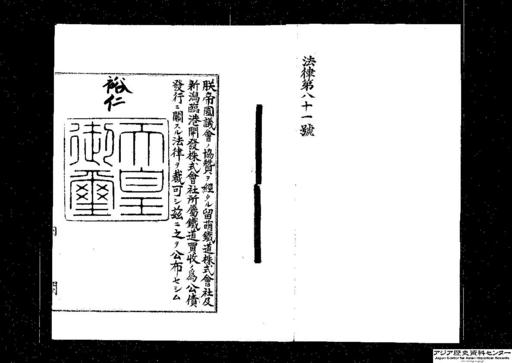 法律第八十一號
朕帝國議會ノ協贊ヲ經タル留萠鐵道株式會社及
新潟臨港開發株式會社所屬鐵道買收ノ爲公債
發行ニ關スル法律ヲ裁可シ茲ニ之ヲ公布セシム
裕仁
天皇
御璽
アジア歴史資料センター
Japan Center for Asian Historical Records